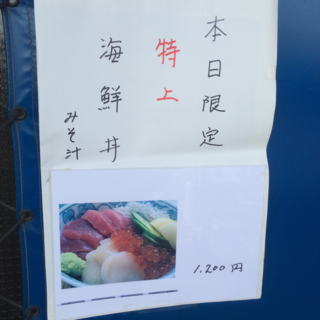 本日限定
特上
海鮮丼
みそ汁
1.200円